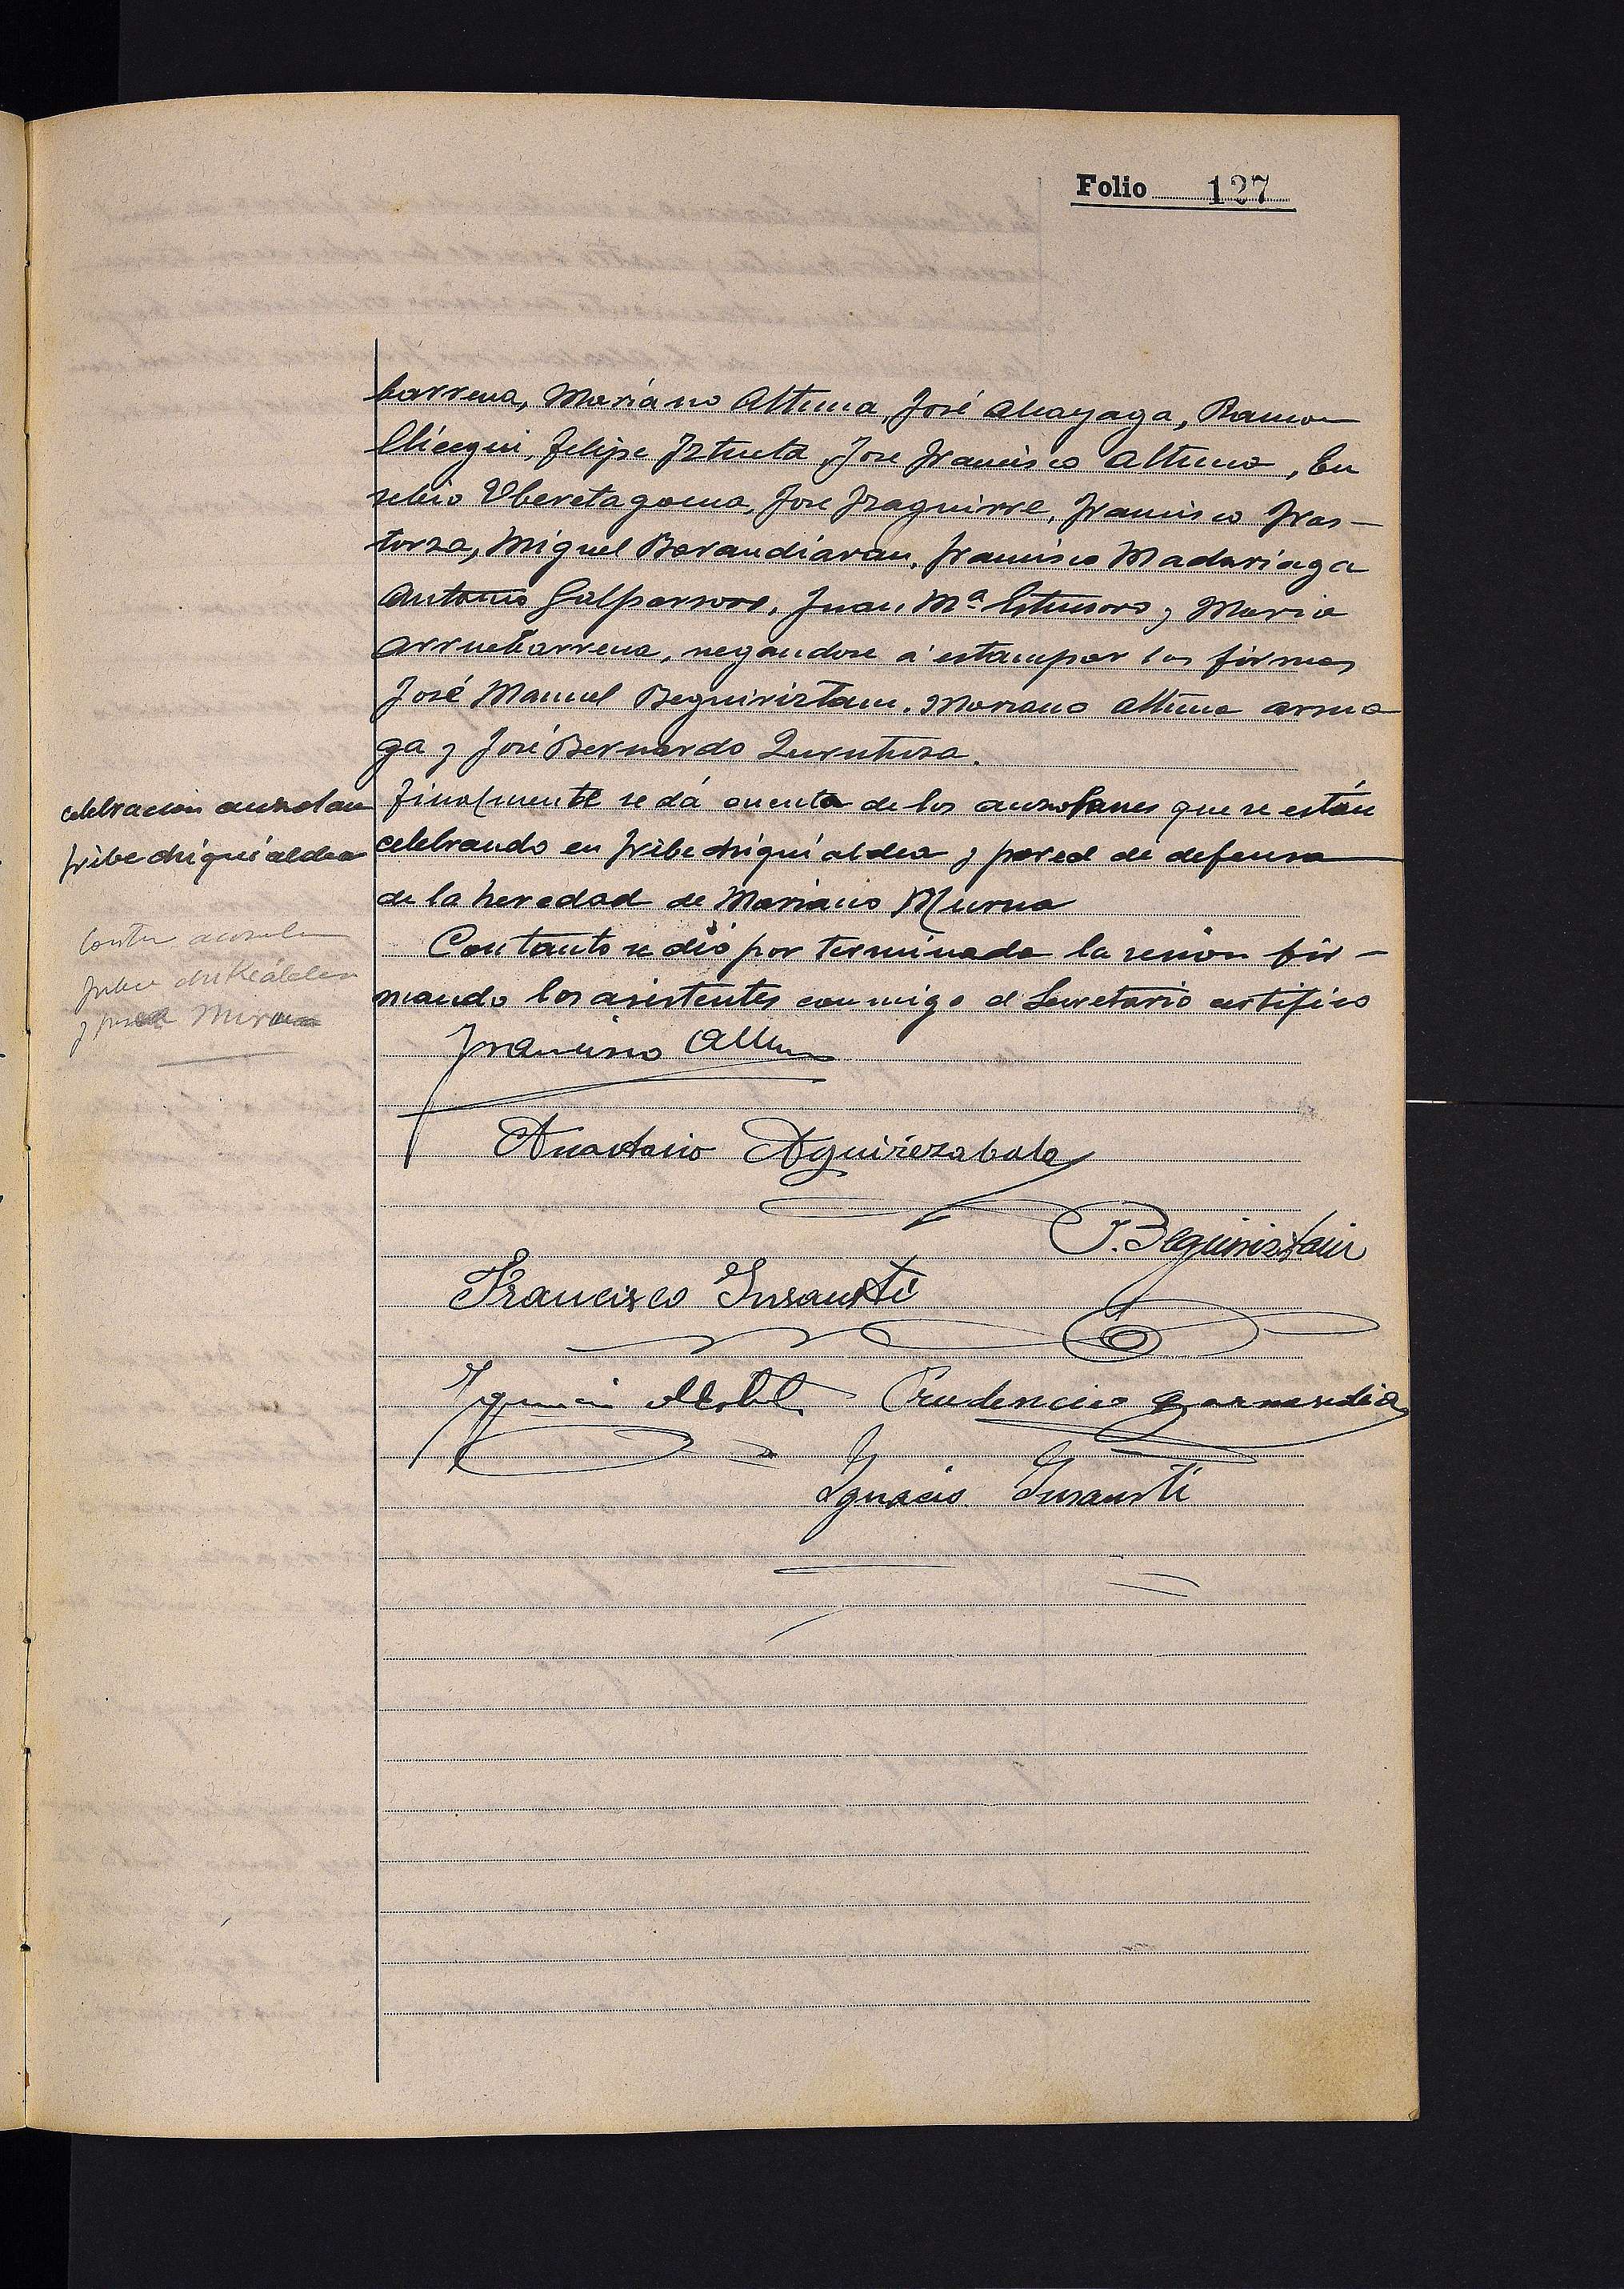 Folio 127
barrena, Mariano Altuna, José Aleayaga, Ramon
Olicegui, Felipe Iztueta, Jose Francisco Altuna, Eu
sebio Uberetagoena, Jose Izaguirre, Francisco Iras-
torza, Miguel Barandiaran, Francisco Madariaga
Antonio Galparsoro, Juan Mª Estensoro y Maria
Arruebarrena, negandose á estampar las firmas
José Manuel Beguiriztain, Mariano Altuna
ga y José Bernardo Zurutuza.
celebracion auzolan
Iribe chiqui aldea
Finalmente se dá cuenta de los auzolanes que se están
celebrando en Iribe chiqui aldea y pared de defensa
de la heredad de Mariano Murua
Con tanto se dió por terminada la sesion fir-
mando los asistentes conmigo el Secretario certifico
Francisco Altuna
Anastasio Aguirrezabala
J. Beguiristain
Francisco Insausti
Ignacio Prudencio Garmendia
Ignacio Insausti